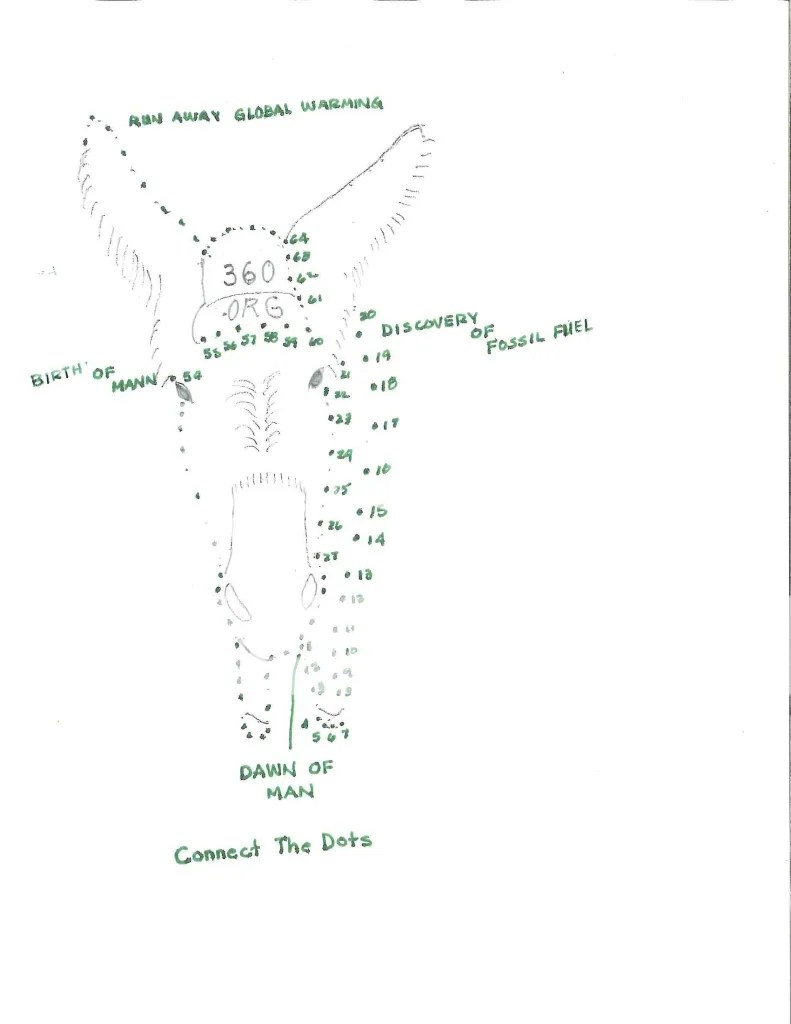 RUN AWAY GLOBAL WARMING
64
63
62
360
61
.ORG
20
DISCOVERY
OF
FOSSIL FUEL
55 56 57 58 59 60
19
BIRTH OF
MANN
54
21
18
22
23
17
24
16
25
15
26
14
27
13
12
11
1
10
12
9
3
13
4
5 6 7
DAWN OF
MAN
Connect The Dots